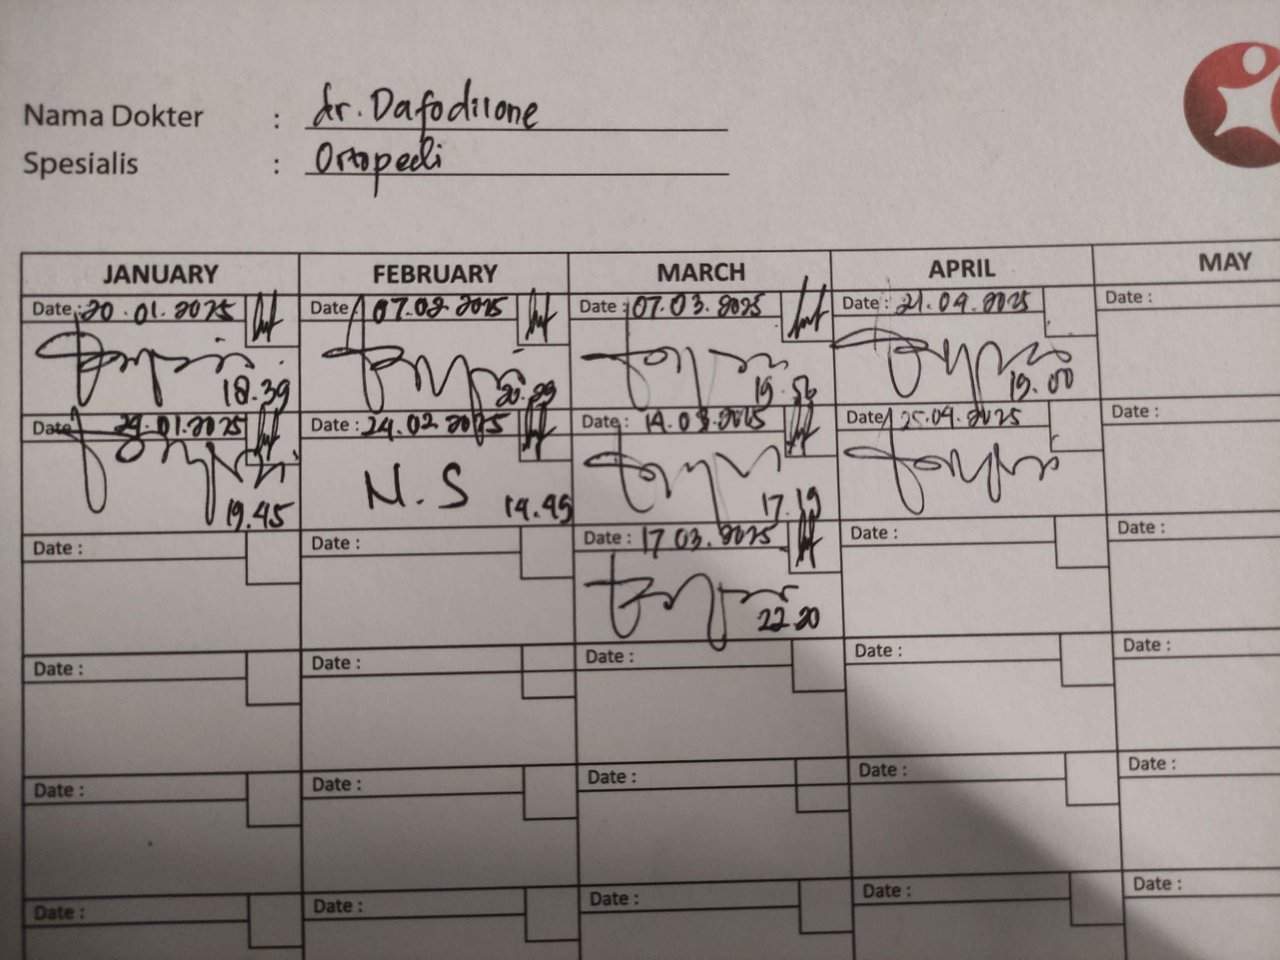 Nama Dokter : dr. Dafodilone
Spesialis : Ortopedi
JANUARY FEBRUARY MARCH APRIL MAY
Date : 20.01.2025 Date : 07.02.2025 Date : 07.03.2025 Date : 21.04.2025 Date :
18.39 19.56 19.00
Date : 01.2025 Date : 24.02.2025 Date : 14.03.2025 Date : 25.04.2025 Date :
19.45 N.S 14.45 17.19
Date : Date : Date : 17 03.2025 Date : Date :
22 20
Date : Date : Date : Date : Date :
Date : Date : Date : Date : Date :
Date : Date : Date : Date : Date :